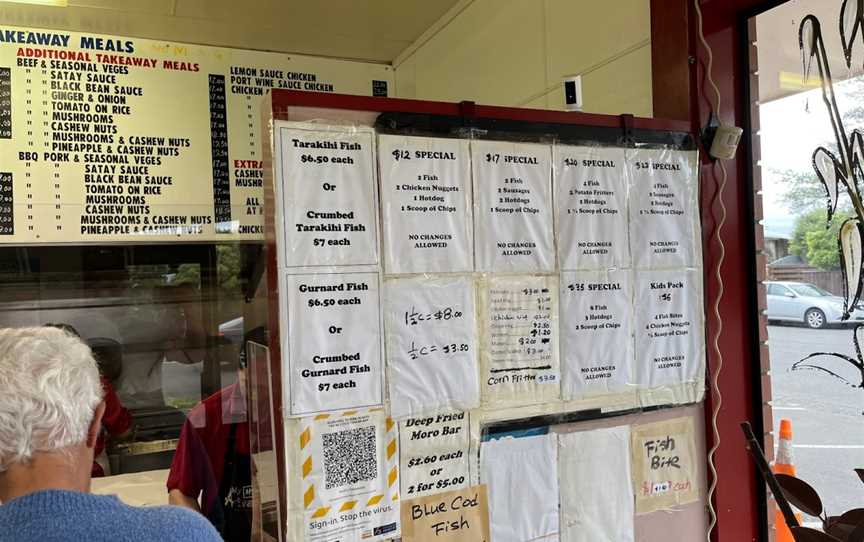 TAKEAWAY MEALS
ADDITIONAL TAKEAWAY MEALS
BEEF & SEASONAL VEGES
" " SATAY SAUCE
" " BLACK BEAN SAUCE
" " GINGER & ONION
" " TOMATO ON RICE
" " MUSHROOMS
" " CASHEW NUTS
" " MUSHROOMS & CASHEW NUTS
" " PINEAPPLE & CASHEW NUTS
BBQ PORK & SEASONAL VEGES
" " SATAY SAUCE
" " BLACK BEAN SAUCE
" " TOMATO ON RICE
" " MUSHROOMS
" " CASHEW NUTS
" " MUSHROOMS & CASHEW NUTS
" " PINEAPPLE & CASHEW NUTS
LEMON SAUCE CHICKEN
PORT WINE SAUCE CHICKEN
CHICKEN
EXTRA
CASHEW
MUSHR
ALL
AT
CHICKEN
Tarakihi Fish
$6.50 each
Or
Crumbed
Tarakihi Fish
$7 each
$12 SPECIAL
2 Fish
2 Chicken Nuggets
1 Hotdog
1 Scoop of Chips
NO CHANGES
ALLOWED
$17 SPECIAL
2 Fish
2 Sausages
2 Hotdogs
1 Scoop of Chips
NO CHANGES
ALLOWED
$20 SPECIAL
2 Fish
2 Potato Fritters
2 Hotdogs
1 ½ Scoop of Chips
NO CHANGES
ALLOWED
SPECIAL
4 Fish
2 Sausages
2 Hotdogs
1 ½ Scoop of Chips
NO CHANGES
ALLOWED
Gurnard Fish
$6.50 each
Or
Crumbed
Gurnard Fish
$7 each
1½C = $8.00
½C = $3.50
Corn Fritter $2.50
$35 SPECIAL
8 Fish
3 Hotdogs
2 Scoop of Chips
NO CHANGES
ALLOWED
Kids Pack
$6
4 Fish Bites
4 Chicken Nuggets
½ Scoop of Chips
NO CHANGES
ALLOWED
Sign-in. Stop the virus.
Deep Fried
Moro Bar
$2.60 each
or
2 for $5.00
Blue Cod
Fish
Fish
Bite
each